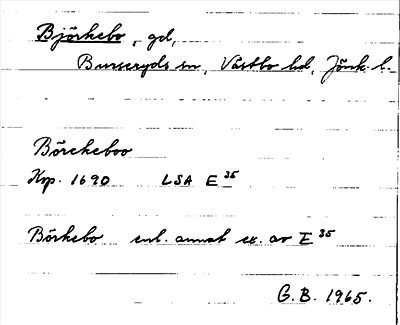 Björkebo, gd,
Burseryds sn, Västbo hd, Jönk. l.
Börckeboo
Krp. 1690 LSA E 35
Börkebo enl. annat ex. av E 35
G. B. 1965.